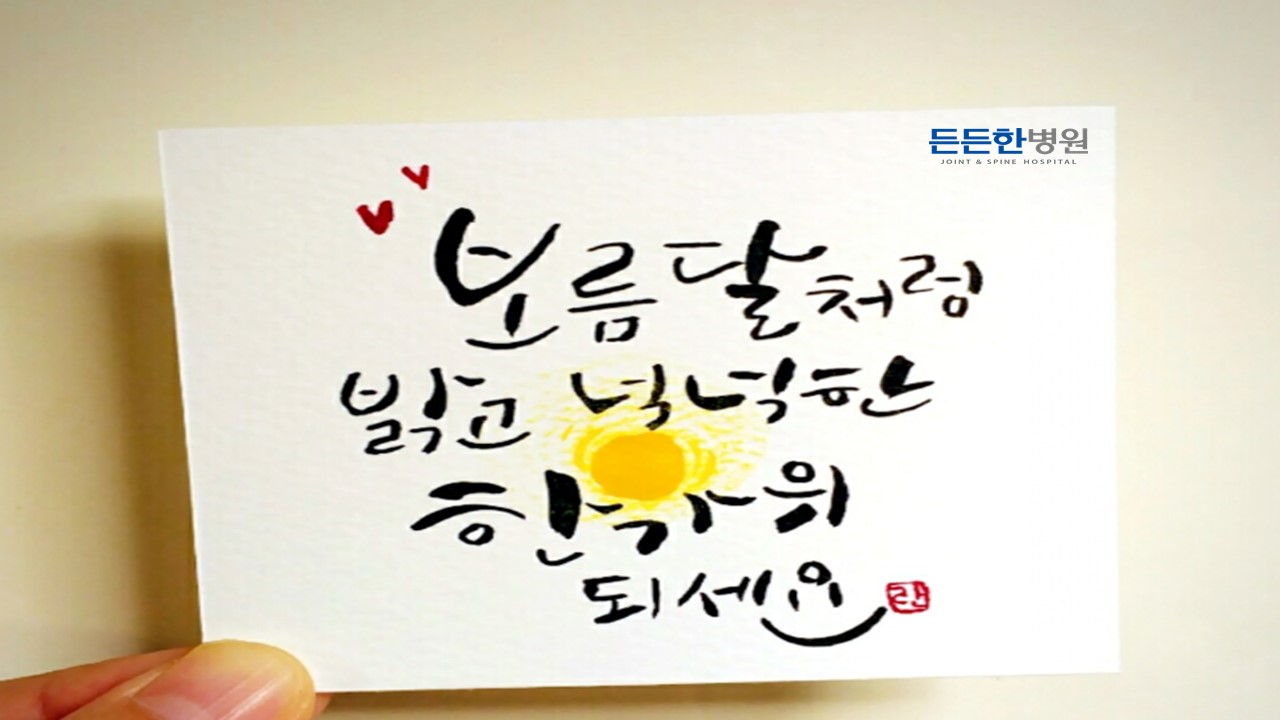 든든한병원
JOINT & SPINE HOSPITAL
보름달처럼
밝고 넉넉한
한가위
되세요
란